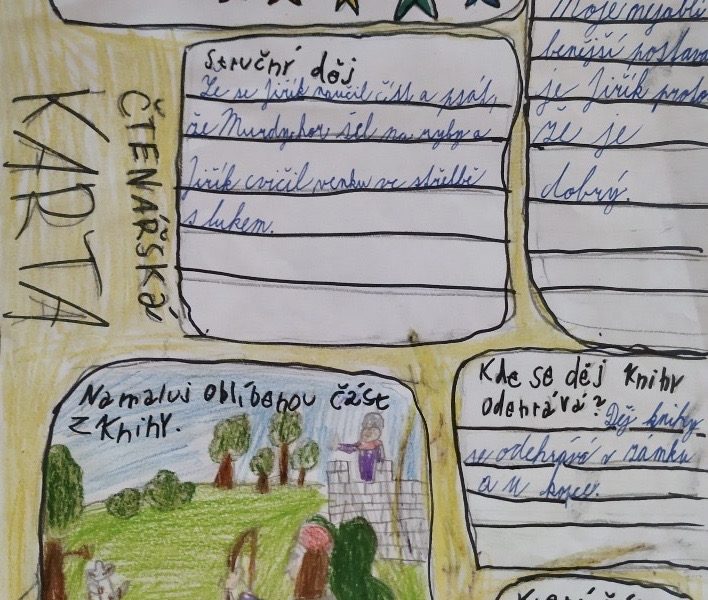 ČTENÁŘSKÁ
KARTA
Stručný děj
Že se Jiřík naučil číst a psát,
že Murdychor šel na ryby a
Jiřík cvičil venku ve střelbě
s lukem.
Moje nejoblí
benější postava
je Jiřík proto
že je
dobrý.
Namaluj oblíbenou část
z knihy.
Kde se děj knihy
odehrává? Děj knihy
se odehrává v zámku
a u